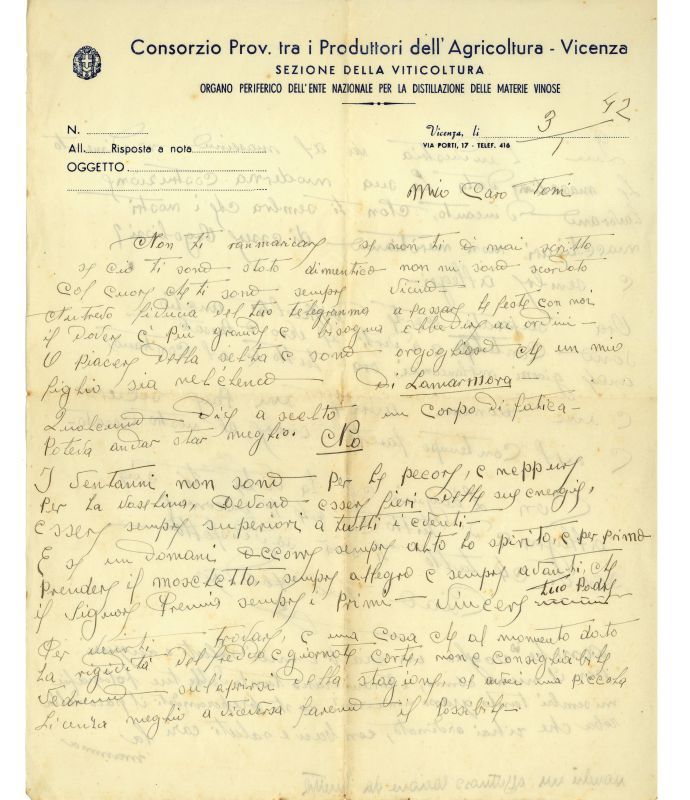 Consorzio Prov. tra i Produttori dell'Agricoltura - Vicenza
SEZIONE DELLA VITICOLTURA
ORGANO PERIFERICO DELL'ENTE NAZIONALE PER LA DISTILLAZIONE DELLE MATERIE VINOSE
N.
All. Risposta a nota
OGGETTO
Vicenza, li 3/1 42
VIA PORTI, 17 - TELEF. 416
Mio Caro Toni
Non ti ranmaricare se non tin ò mai scritto
se cuo ti sono stato dimentico non mi sono scordato
col cuore che ti sono sempre vicino
Nutrevo fiducia del tuo telegramma a passare le feste con noi
il dovere è più grande e bisogna ubbedire ai ordini-
O piacere della scelta e sono orgoglioso che un mio
figlio sia nel'elenco Di Lamarmora
Qualcuno Dice a scelto un corpo di fatica-
Poteva andar star meglio. No
I ventanni non sono per le pecore, e neppure
Per la vaselina, Devono essere fieri delle sue energie,
essere sempre superiori a tutti i eventi-
E se un domani occorre sempre alto lo spirito, e per primo
Prendere il moschetto, sempre allegro e sempre avanti, che
il Signore Premia sempre i Primi- Vincere tuo Padre
Per venirti trovare, è una cosa che al momento dato
La rigidità del freddo e giornate corte, non è consigliabile
Vedremo sul'aprirsi della stagione se avrai una piccola
Licenza meglio a viceversa faremo il possibile